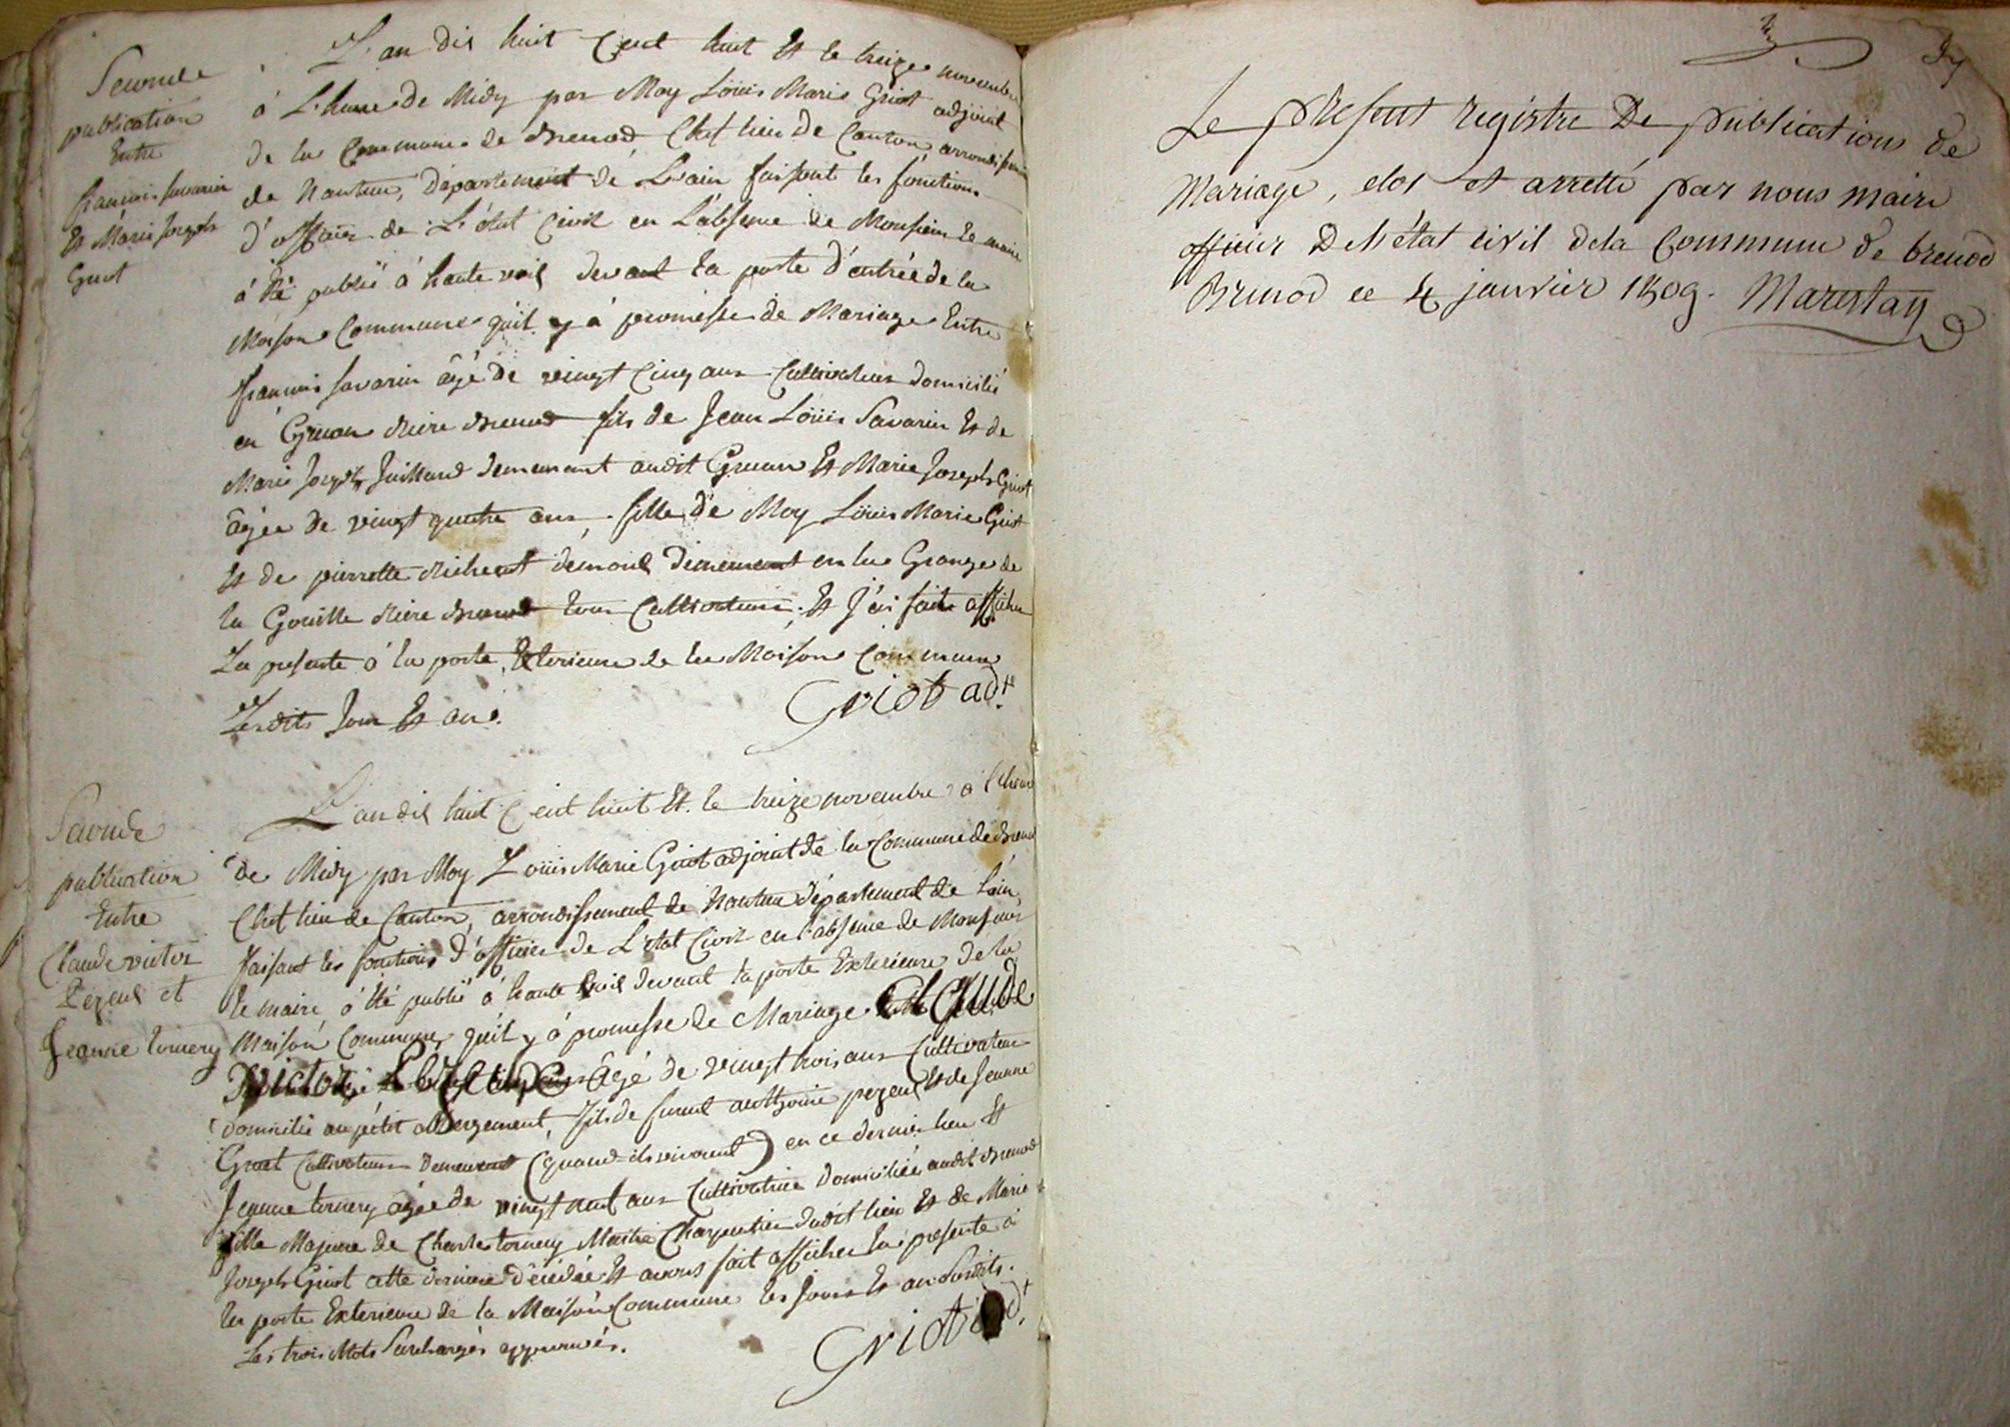 Seconde
publication
Entre
françois savarin
Et Marie Joseph
Griot
L'an dix huit Cent huit Et le treize novembre
à L'heure de Midy par Moy Loüis Marie Griot adjoint
de la Commune de Brenod Chef lieu de Canton arrondissem
de Nantua, Département de L'ain faisant les fonctions
d'officier de L'état Civil en L'absence de Monsieur le maire
à été publié à haute voix devant la porte d'entrée de la
Maison Commune qu'il y à promesse de Mariage Entre
françois savarin âgé de vingt Cinq ans Cultivateur domicilié
en rière Brenod fils de Jean Loüis Savarin Et de
Marie Joseph Juilliard demeurant audit Et Marie Joseph Griot
âgée de vingt quatre ans fille de Moy Loüis Marie Griot
Et de pierrette demeurant en la Grange de
la Gouille rière Brenod tous Cultivateurs, Et J'ai fait afficher
La presente à la porte Exterieure de la Maison Commune
Lesdits Jour Et an.
Griot adt.
Seconde
publication
Entre
Claude victor
Pezeul et
Jeanne tornery
L'an dix huit Cent huit Et le treize novembre à l'heure
de Midy par Moy Loüis Marie Griot adjoint de la Commune de Brenod
Chef lieu de Canton, arrondissement de Nantua Département de L'ain,
faisant les fonctions d'officier de L'état Civil en l'absence de Monsieur
le maire, à été publié à haute voix devant la porte Exterieure de la
Maison Commune, qu'il y à promesse de Mariage Entre Claude
victor âgé de vingt trois ans Cultivateur
domicilié au petit abbergement, fils de furent anthoine pezeul Et de Jeanne
Griot Cultivateurs demeurant (quand ils vivoient) en ce dernier lieu Et
Jeanne tornery âgée de vingt huit ans Cultivatrice domiciliée audit Brenod
fille Majeure de Charle tornery Maître Charpentier dudit lieu Et de Marie
Joseph Griot cette derniere décédée Et avons fait afficher la presente à
la porte Exterieure de la Maison Commune les Jours Et an susdits.
Les trois Mots surchargés approuvés.
Griot adt.
Le present registre De publication de
Mariage, clos et arretté par nous maire
officier De l'état civil dela Commune de brenod
Brenod ce 4 janvier 1809. Marestan